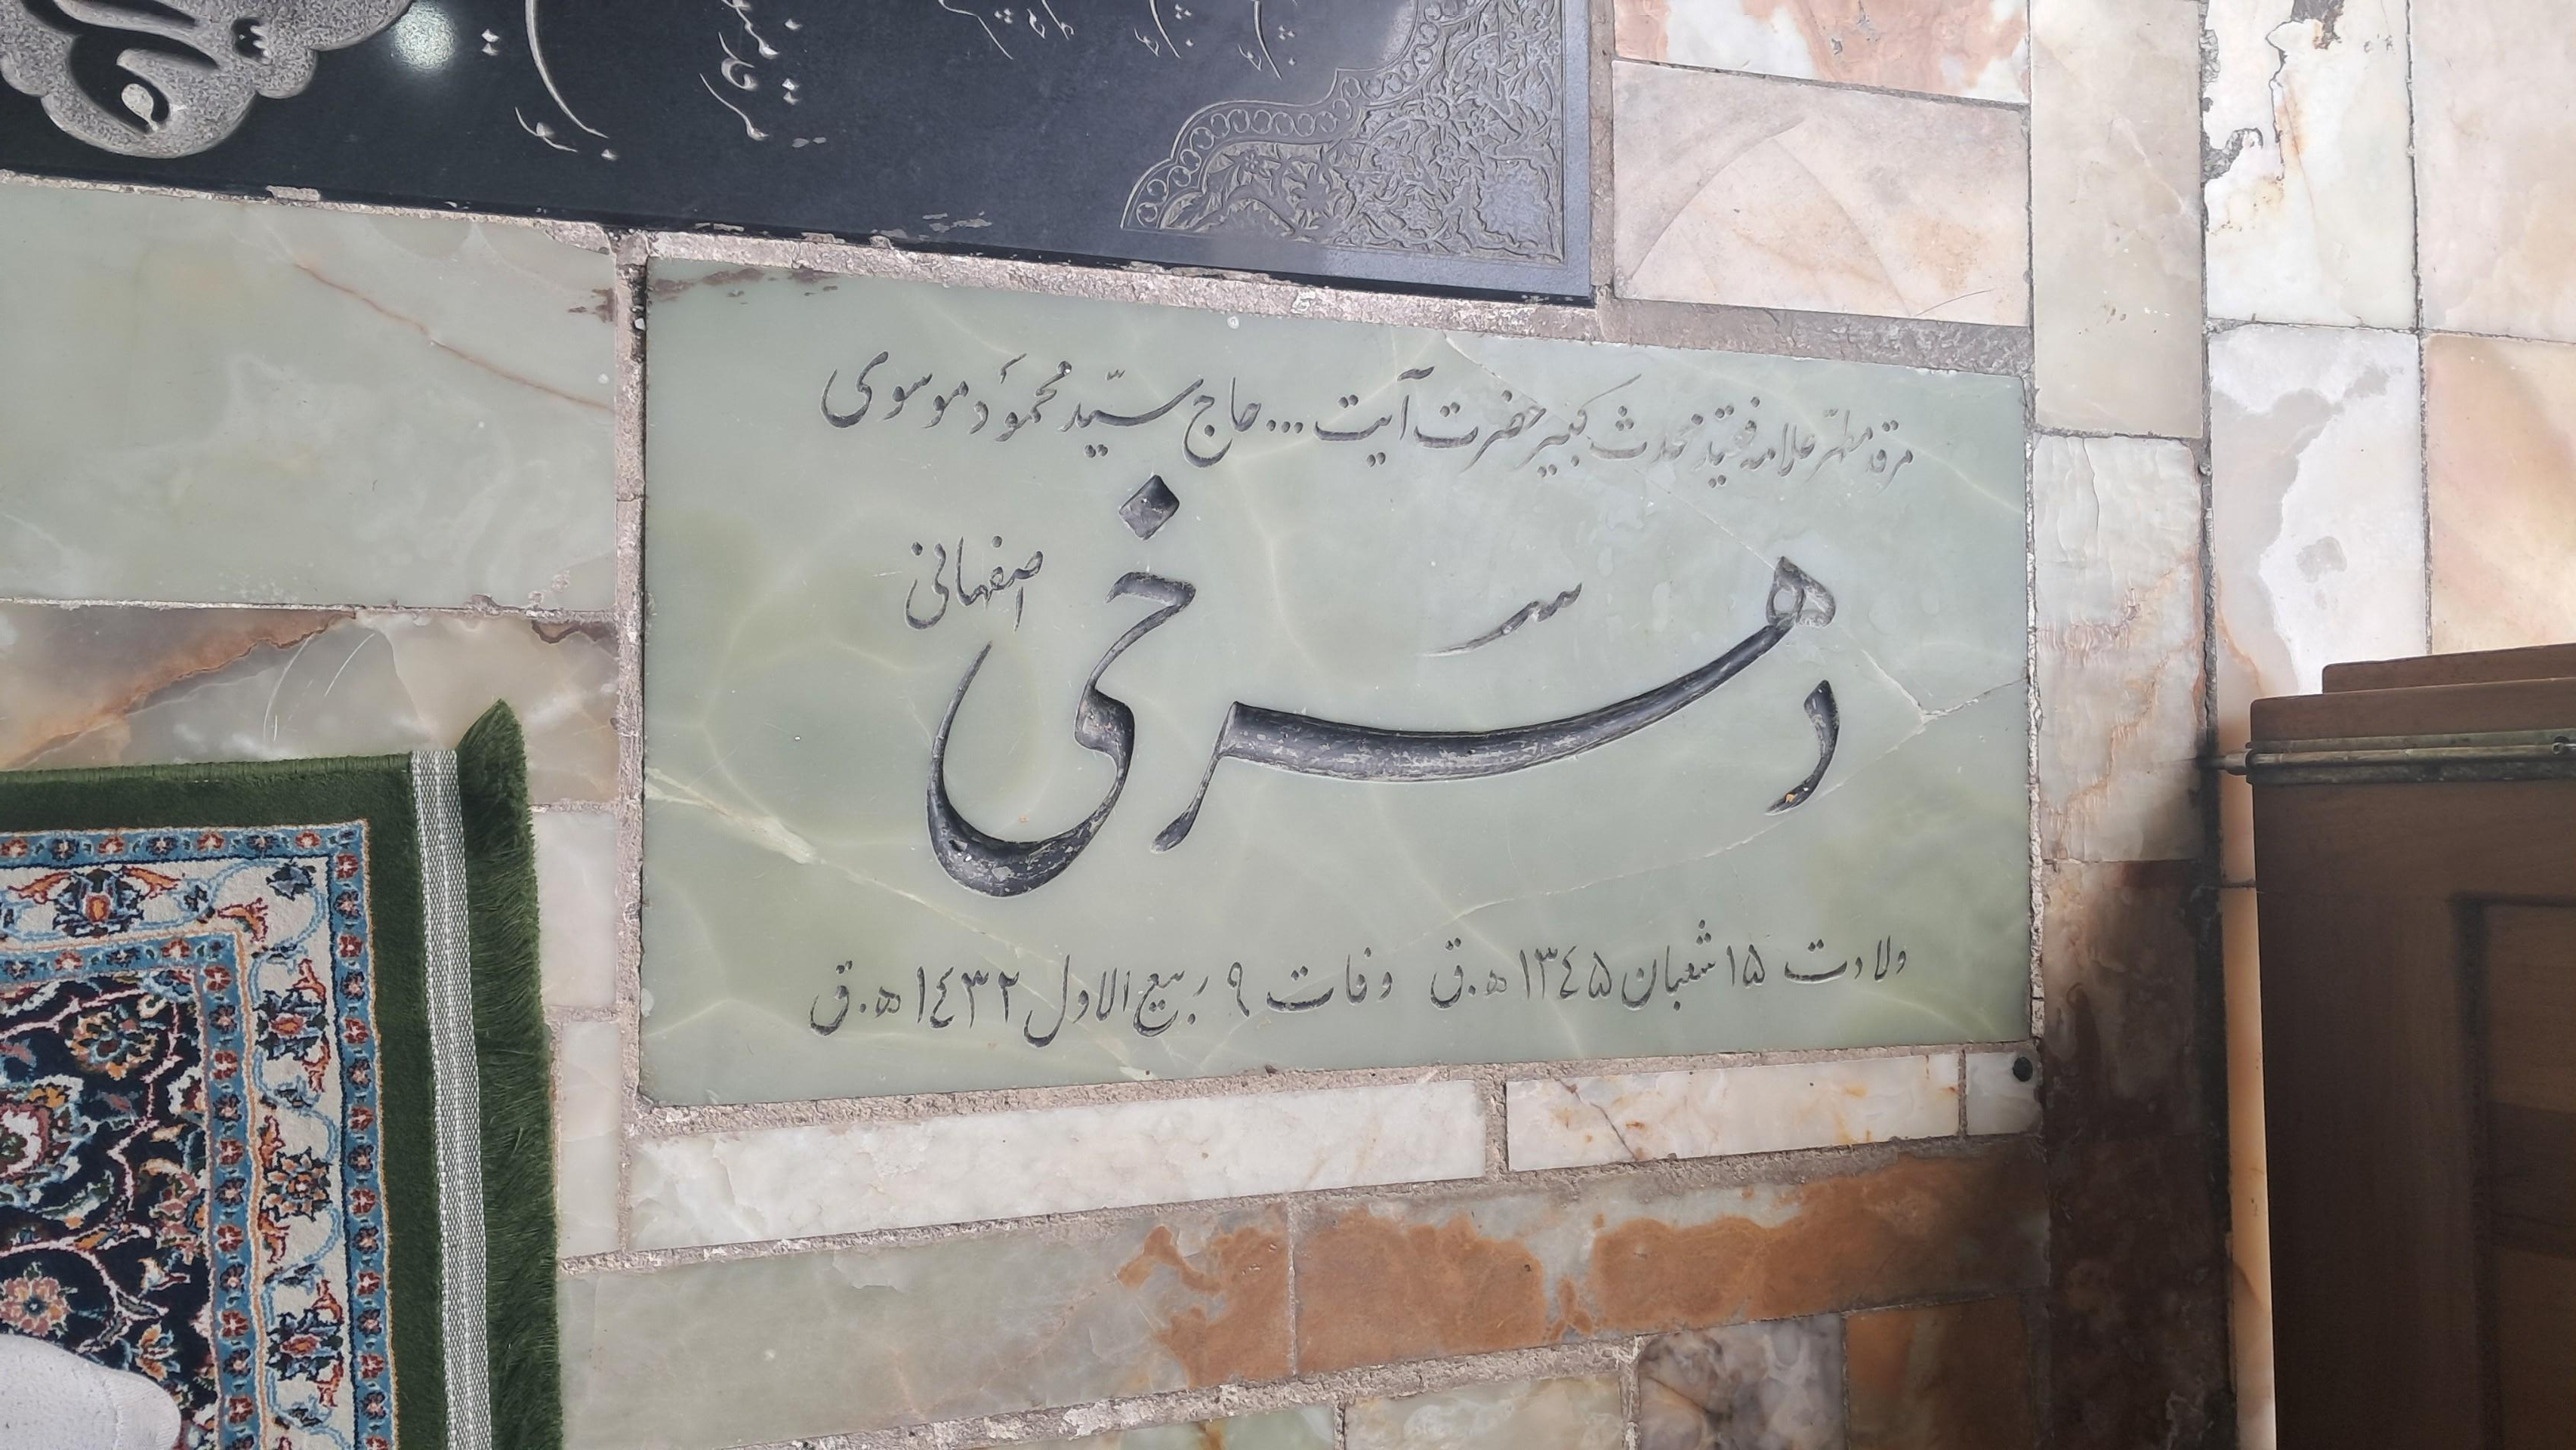 مرقد مطهّر علامه فقید محدث کبیر حضرت آیت... حاج سیّد محمود موسوی
دهسرخی
اصفهانی
ولادت ۱۵ شعبان ۱۳٤۵ ه.ق وفات ۹ ربیع الاول ۱٤۳۲ ه.ق